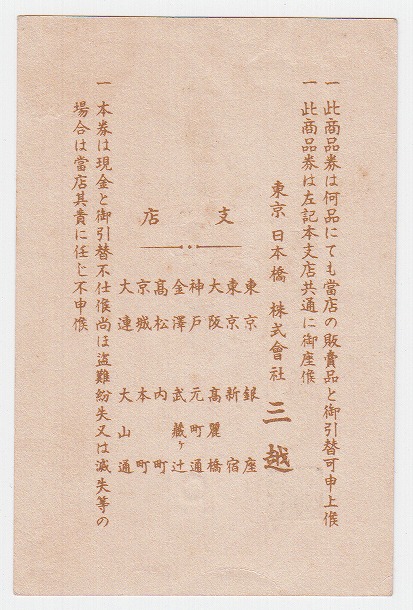 一 此商品券は何品にても當店の販賣品と御引替可申上候
一 此商品券は左記本支店共通に御座候
東京 日本橋 株式會社 三越
支店
東京 銀座
東京 新宿
大阪 高麗橋
神戸 元町通
金澤 武蔵ヶ辻
高松 内町
京城 本町
大連 大山通
一 本券は現金と御引替不仕候尚ほ盗難紛失又は滅失等の
場合は當店其責に任じ不申候